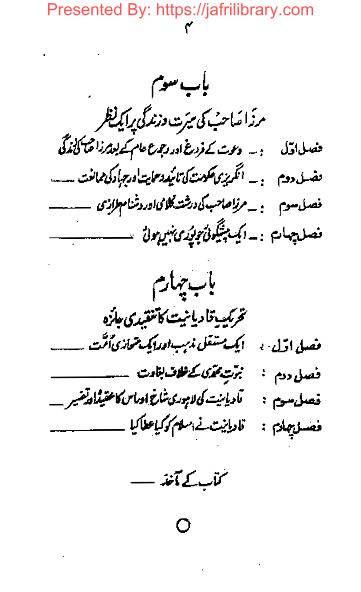 Presented By: https://jafrilibrary.com
۴
باب سوم
مرزا صاحب کی سیرت و زندگی پر ایک نظر
فصل اوّل :۔ دعوت کے فروغ اور رجوع عام کے بعد مرزا صاحب کی زندگی
فصل دوم :۔ انگریزی حکومت کی تائید و حمایت اور جہاد کی ممانعت
فصل سوم :۔ مرزا صاحب کی درشت کلامی اور دشنام طرازی
فصل چہارم :۔ ایک پیشگوئی جو پوری نہیں ہوئی
باب چہارم
تحریک قادیانیت کا تنقیدی جائزہ
فصل اوّل : ایک مستقل مذہب اور ایک متوازی اُمّت
فصل دوم : نبوّتِ محمّدی کے خلاف بغاوت
فصل سوم : قادیانیت کی لاہوری شاخ اور اس کا عقیدہ اور تفسیر
فصل چہارم : قادیانیت نے اسلام کو کیا عطا کیا
کتاب کے مآخذ